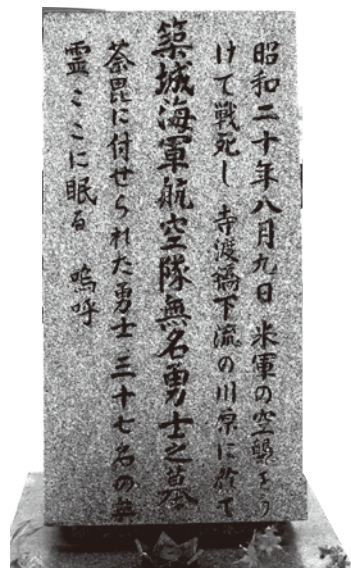 昭和二十年八月九日 米軍の空襲をう
けて戦死し 寺渡橋下流の川原に於て
築城海軍航空隊無名勇士之墓
荼毘に付せられた勇士 三十七名の英
霊ここに眠る 嗚呼